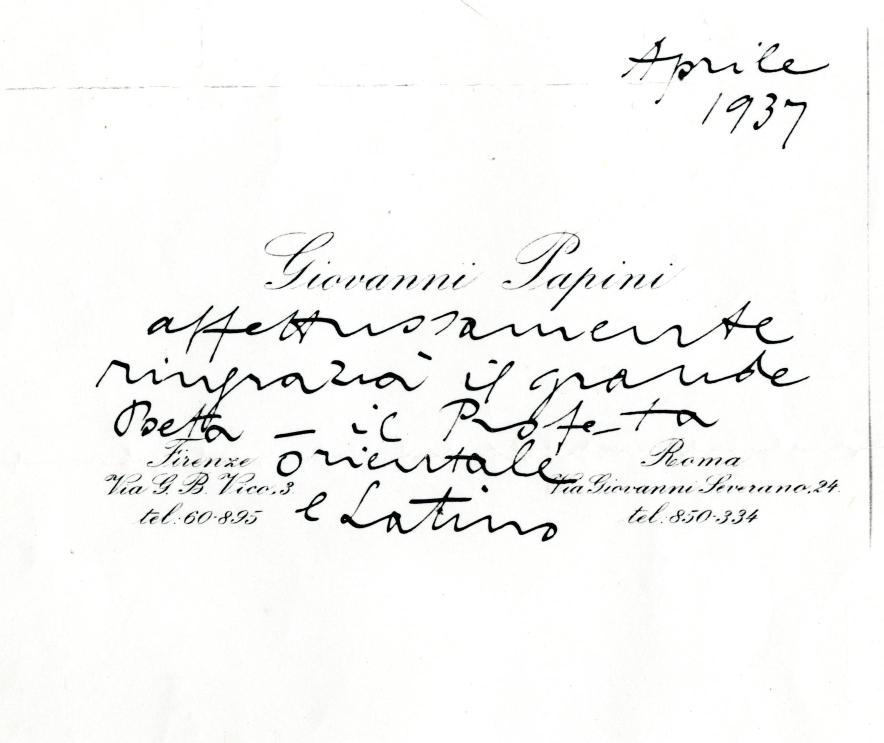 Aprile
1937
Giovanni Papini
affettuosamente
ringrazia il grande
Poeta – il Profeta
orientale
e Latino
Firenze
Via G. B. Vico, 3.
tel: 60-895
Roma
Via Giovanni Severano, 24.
tel: 850-334